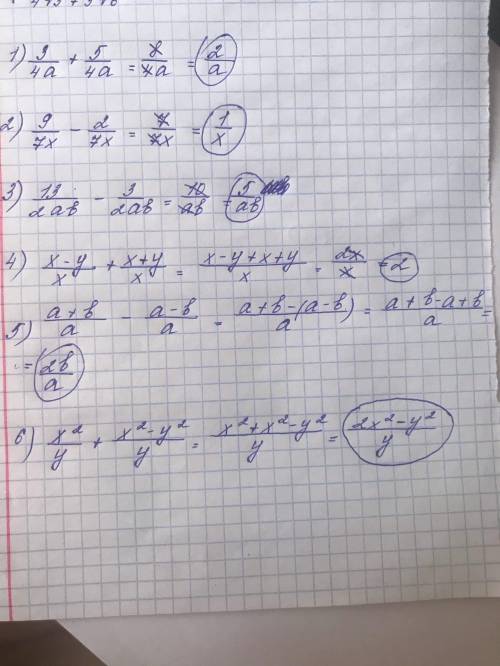 1) 3/4a + 5/4a = 8/4a = 2/a
2) 9/7x - 2/7x = 7/7x = 1/x
3) 13/2ab - 3/2ab = 10/ab = 5/ab
4) x-y/x + x+y/x = x-y+x+y/x = 2x/x = 2
5) a+b/a - a-b/a = a+b-(a-b)/a = a+b-a+b/a =
= 2b/a
6) x²/y + x²-y²/y = x²+x²-y²/y = 2x²-y²/y